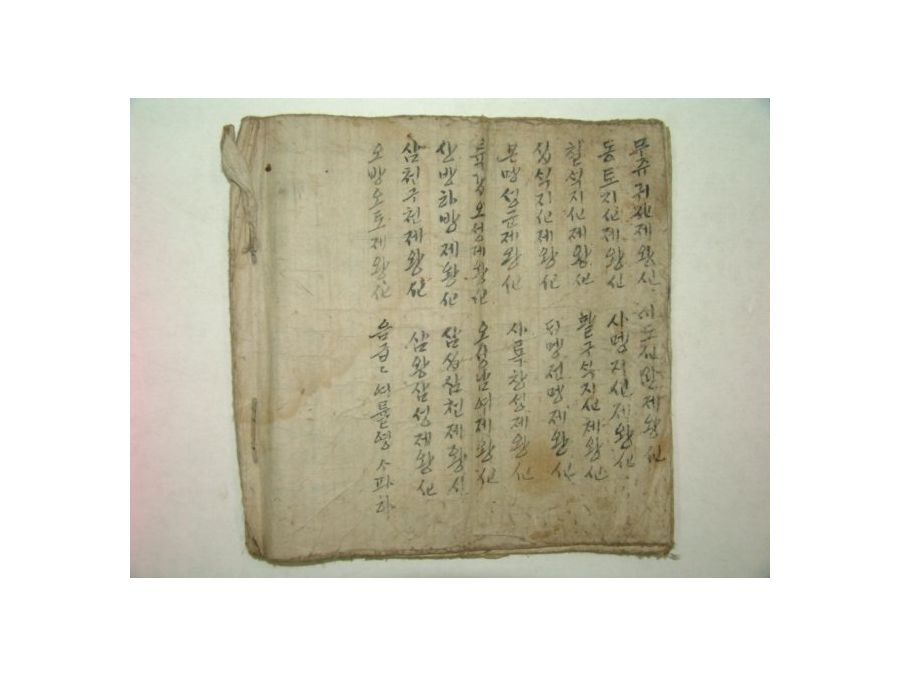 문쥬귀신제왕신 제왕신
동토지신제왕신 사명지신제왕신
칠석지신제왕신 팔구석지신제왕신
십석지신제왕신 전명제왕신
본명성군제왕신 사륙창성제왕신
륙갑오성제왕신 오성남여제왕신
산방하방제왕신 삼십삼천제왕신
삼천구천제왕신 삼왕삼성제왕신
오방오토제왕신 음급〻여률영 사파하